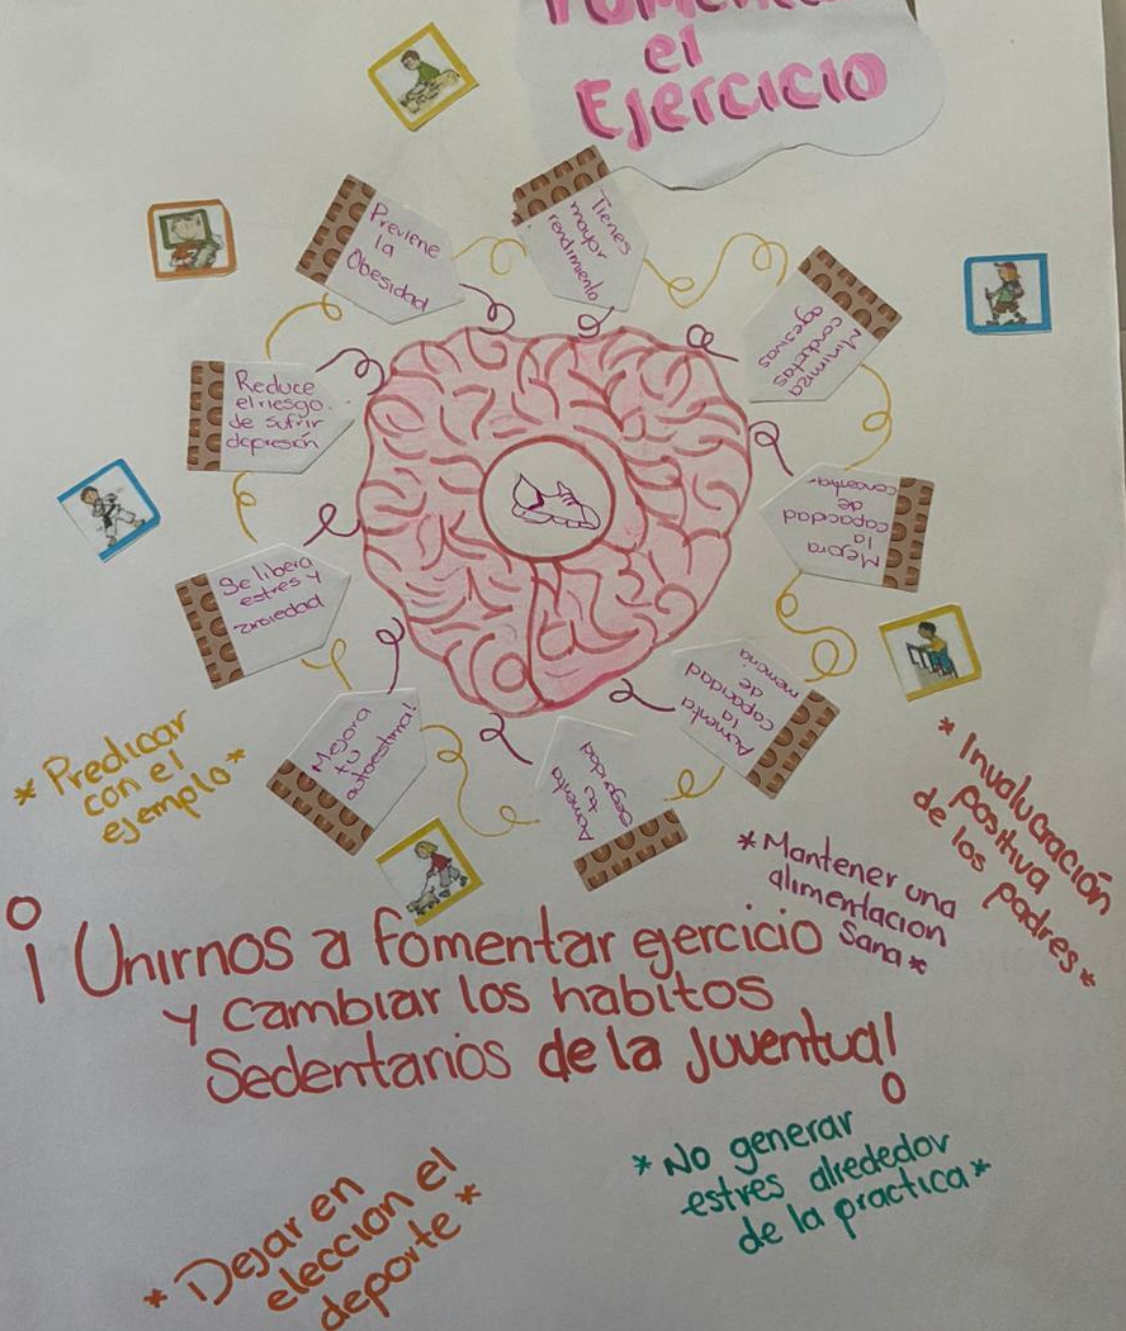 el
Ejercicio
Previene
la
Obesidad
Tienes
mayor
rendimiento
Minimiza
conductas
agesivas
Mejora
la
capacidad
de
concentrar
Aumenta
la
capacidad
de
memoria
Aumenta
tu
segoridad
Mejora
tu
autoestima!
Se libera
estres y
ansiedad
Reduce
el riesgo
de sufrir
depresión
* Predicar
con el
ejemplo *
* Involucración
positiva
de los padres *
* Mantener una
alimentacion
sana *
¡Unirnos a fomentar ejercicio
y cambiar los habitos
Sedentarios de la juventud!
* Dejar en
eleccion el
deporte *
* No generar
estres alrededor
de la practica *